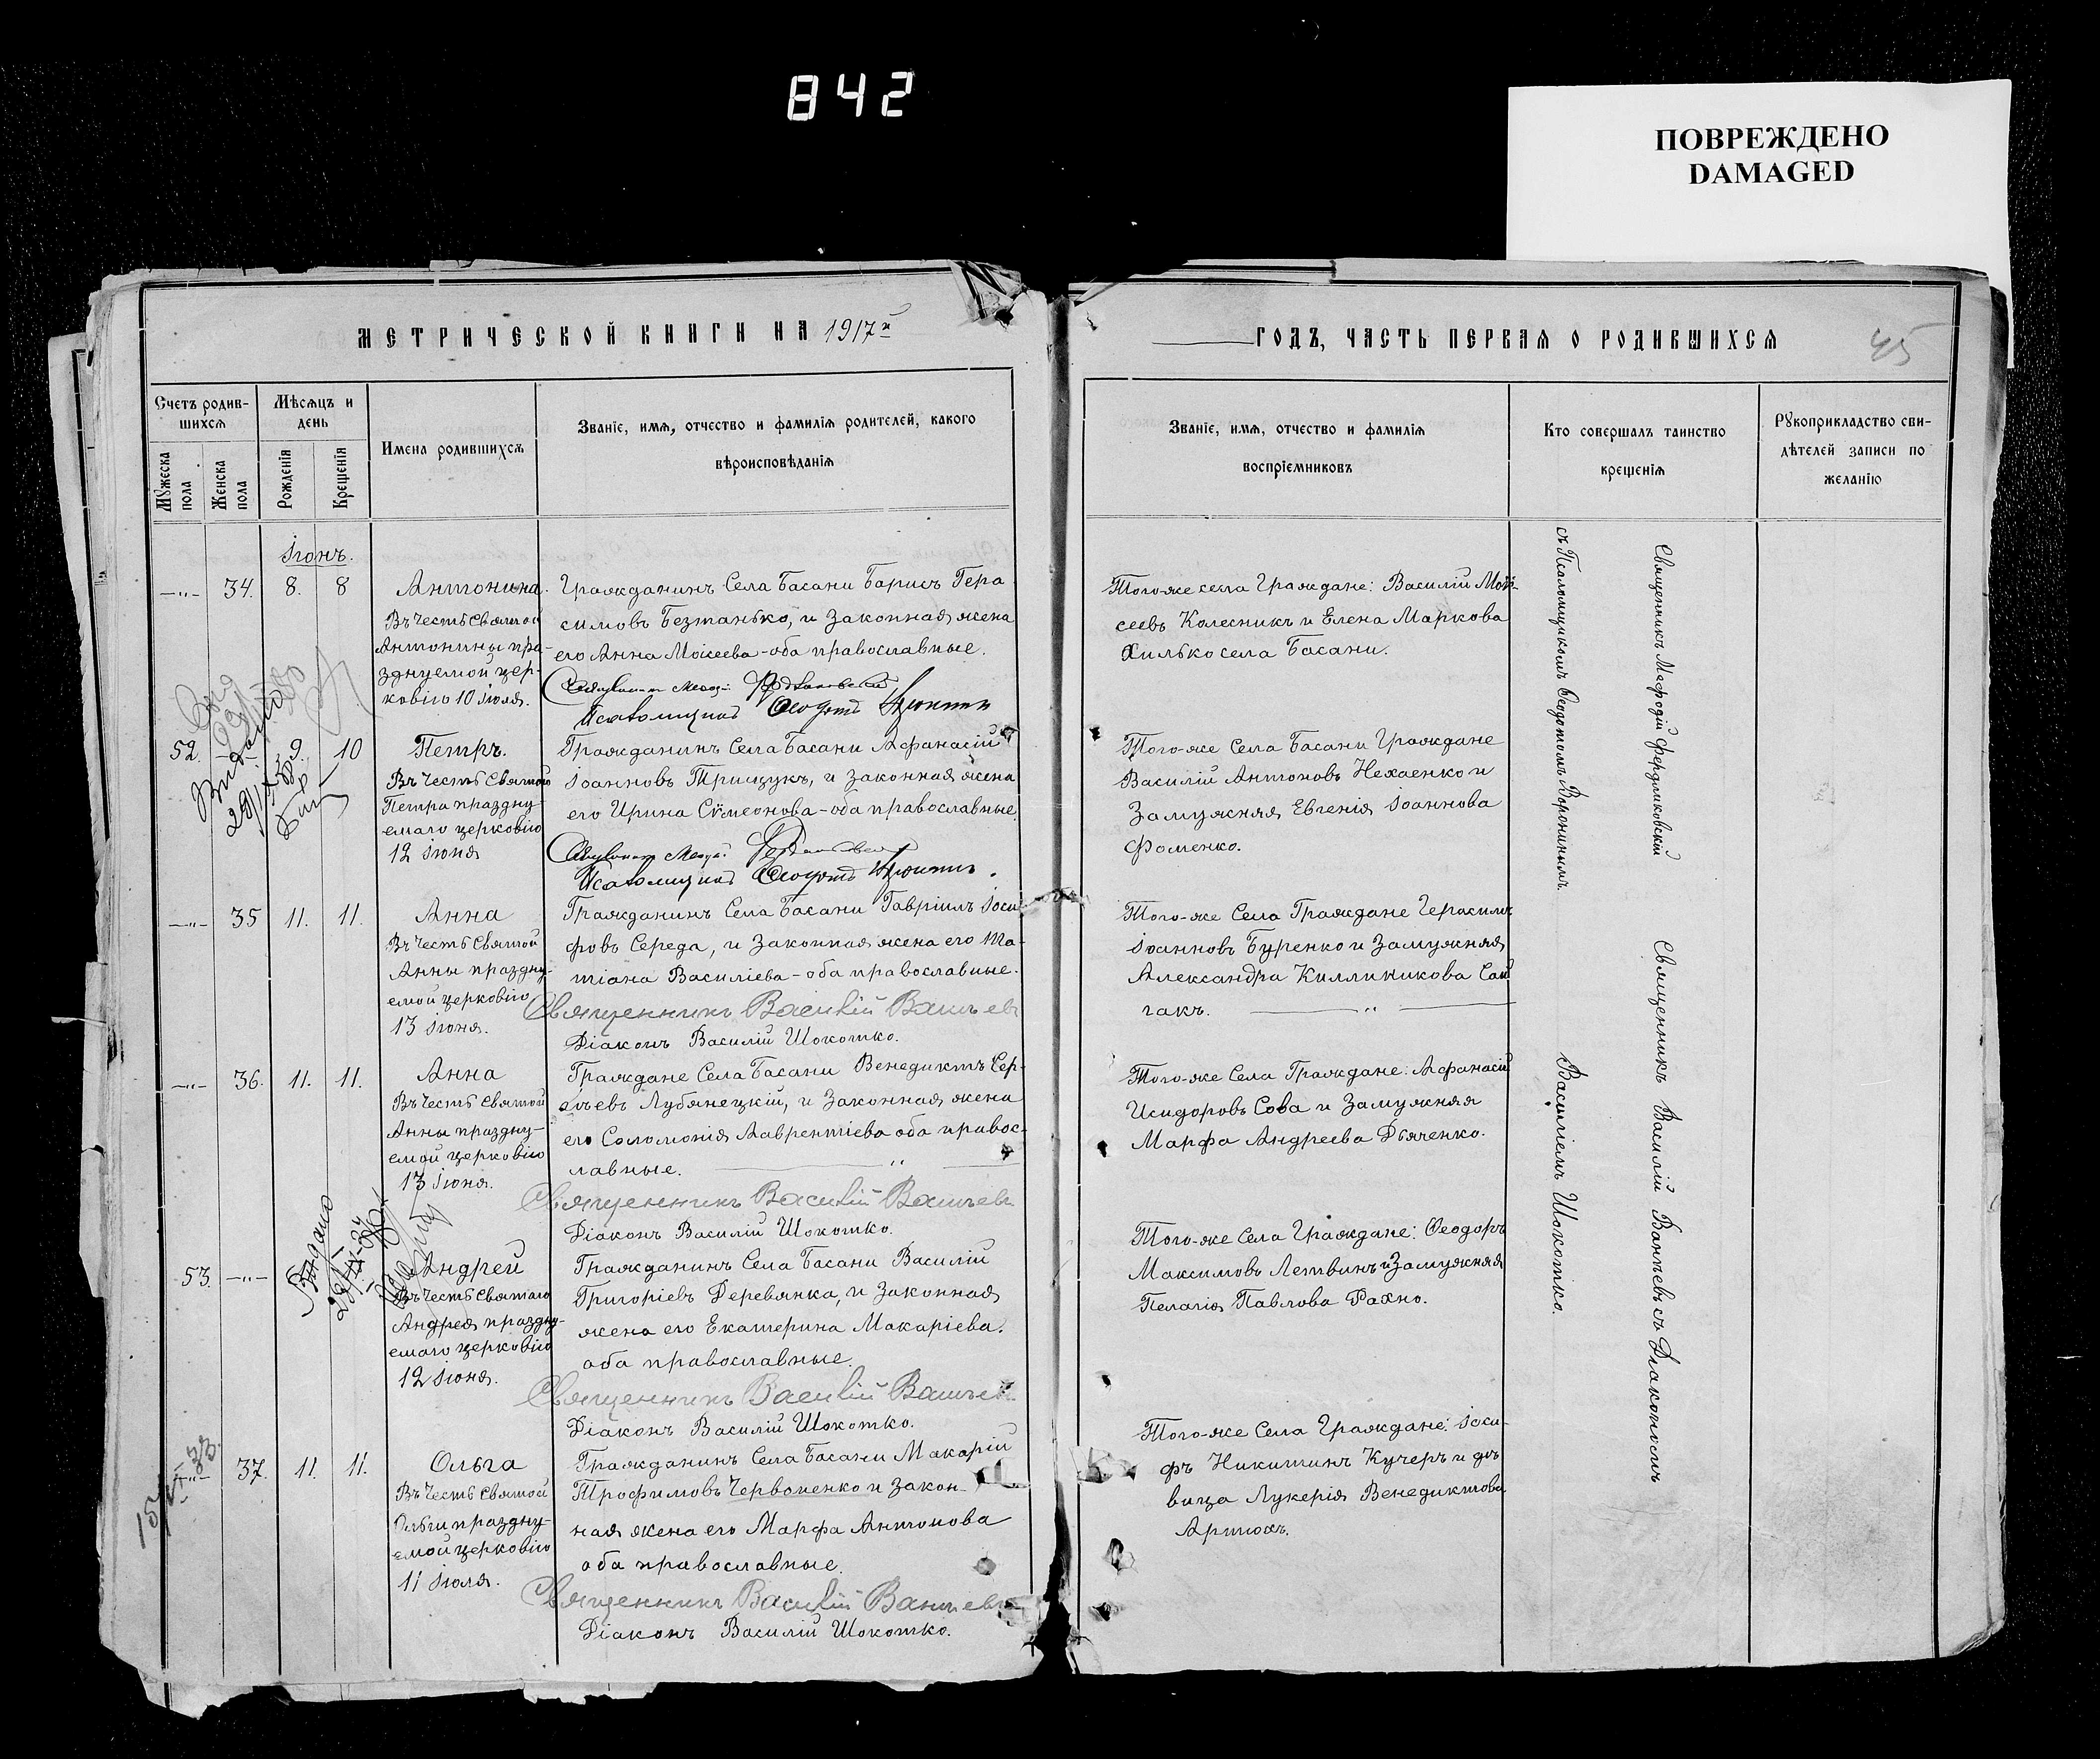 842
ПОВРЕЖДЕНО
DAMAGED
МЕТРИЧЕСКОЙ КНИГИ НА 1917й
ГОДЪ, ЧАСТЬ ПЕРВАЯ О РОДИВШИХСЯ
45
Счетъ родив-
шихся
Мѣсяцъ и
день
Мужеска
пола
Женска
пола
Рожденія
Крещенія
Имена родившихся
Званіе, имя, отчество и фамилія родителей, какого
вѣроисповѣданія
Званіе, имя, отчество и фамилія
воспріемниковъ
Кто совершалъ таинство
крещенія
Рукоприкладство сви-
дѣтелей записи по
желанію
Іюнь.
—"— 34. 8. 8
Антонина.
Въ Честь Святой
Антонины пра-
зднуемой цер-
ковію 10 Іюля.
Гражданинъ Села Басани Борисъ Гера
симовъ Безпанько, и Законная жена
его Анна Моисеева - оба православные.
Того-же села Граждане: Василій Мои-
сеевъ Колесникъ и Елена Маркова
Хилько села Басани.
52. —"— 9. 10
Петръ.
Въ Честь Святого
Петра праздну-
емаго церковію
12 Іюня
Гражданинъ Села Басани Афанасій
Іоанновъ Трищукъ, и законная жена
его Ирина Сүмеонова - оба православные.
Того-же Села Басани Граждане
Василій Антоновъ Нехаенко и
Замужняя Евгенія Іоаннова
Фоменко.
—"— 35 11. 11.
Анна
Въ Честь Святой
Анны праздну-
емой церковію
13 Іюня.
Гражданинъ Села Басани Гавріилъ Іоси
фовъ Середа, и Законная жена его Та-
тіана Василіева - оба православные.
Священникъ Василій
Діаконъ Василій Шокотко.
Того-же Села Граждане Герасимъ
Іоанновъ Буренко и Замужняя
Александра Киллиникова Сай
гакъ.
—"— 36. 11. 11.
Анна
Въ Честь Святой
Анны праздну-
емой церковію
13 Іюня.
Граждане Села Басани Венедиктъ Сер-
гѣевъ Лубянецкій, и Законная жена
его Соломонія Лаврентіева оба правос-
лавные.
Священникъ Василій
Діаконъ Василій Шокотко.
Того-же Села Граждане: Афанасій
Исидоровъ Сова и Замужняя
Марфа Андреева Дьяченко.
53. —"—
Андрей
Въ Честь Святаго
Андрея праздну-
емаго церковію
12 Іюня.
Гражданинъ Села Басани Василій
Григоріевъ Деревянка, и Законная
жена его Екатерина Макаріева.
оба православные.
Священникъ Василій
Діаконъ Василій Шокотко.
Того-же Села Граждане: Ѳеодоръ
Максимовъ Летвинъ и Замужняя
Пелагія Павлова Рахно.
—"— 37. 11. 11.
Ольга
Въ Честь Святой
Ольги праздну-
емой церковію
11 Іюля.
Гражданинъ Села Басани Макарій
Трофимовъ Червоненко и Закон-
ная жена его Марфа Антонова
оба православные.
Священникъ Василій
Діаконъ Василій Шокотко.
Того-же Села Граждане: Іоси-
фъ Никитинъ Кучеръ и дѣ
вица Лукерія Венедиктова
Артюхъ.
Священникъ
съ Псаломщикомъ Ѳеодотомъ
Священникъ Василій съ Діакономъ
Василіемъ Шокотко.
Выдано